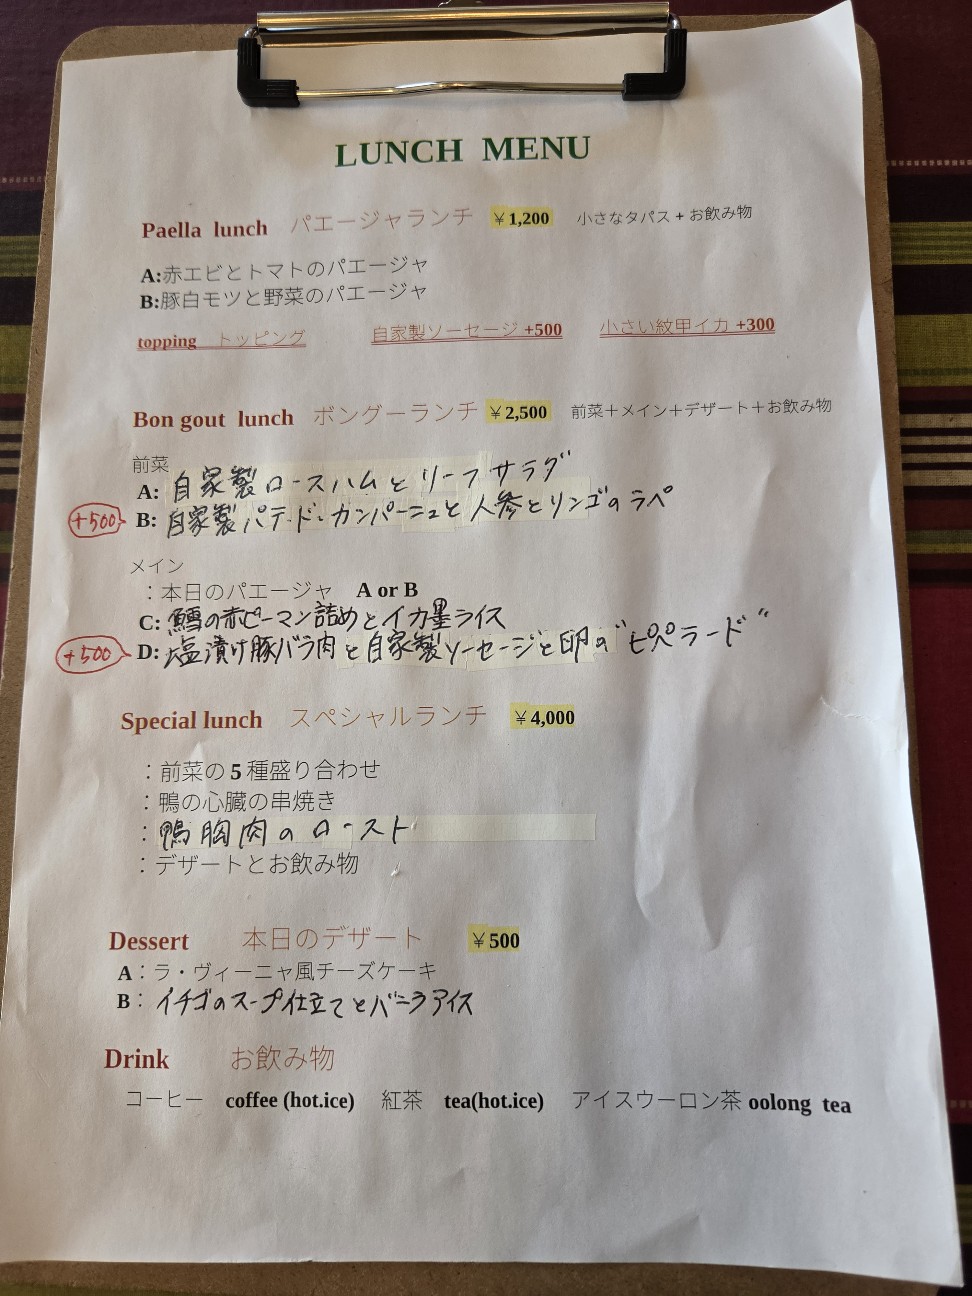 LUNCH MENU
Paella lunch パエージャランチ ￥1,200 小さなタパス + お飲み物
A:赤エビとトマトのパエージャ
B:豚白モツと野菜のパエージャ
topping トッピング 自家製ソーセージ +500 小さい紋甲イカ +300
Bon gout lunch ボングーランチ ￥2,500 前菜＋メイン＋デザート＋お飲み物
前菜
A: 自家製ロースハムとリーフサラダ
+500 B: 自家製パテ・ド・カンパーニュと人参とリンゴのラペ
メイン
：本日のパエージャ A or B
C: 鱈の赤ピーマン詰めとイカ墨ライス
+500 D: 塩漬け豚バラ肉と自家製ソーセージと卵の"ピペラード"
Special lunch スペシャルランチ ￥4,000
：前菜の 5 種盛り合わせ
：鴨の心臓の串焼き
：鴨胸肉のロースト
：デザートとお飲み物
Dessert 本日のデザート ￥500
A：ラ・ヴィーニャ風チーズケーキ
B：イチゴのスープ仕立てとバニラアイス
Drink お飲み物
コーヒー coffee (hot.ice) 紅茶 tea(hot.ice) アイスウーロン茶 oolong tea